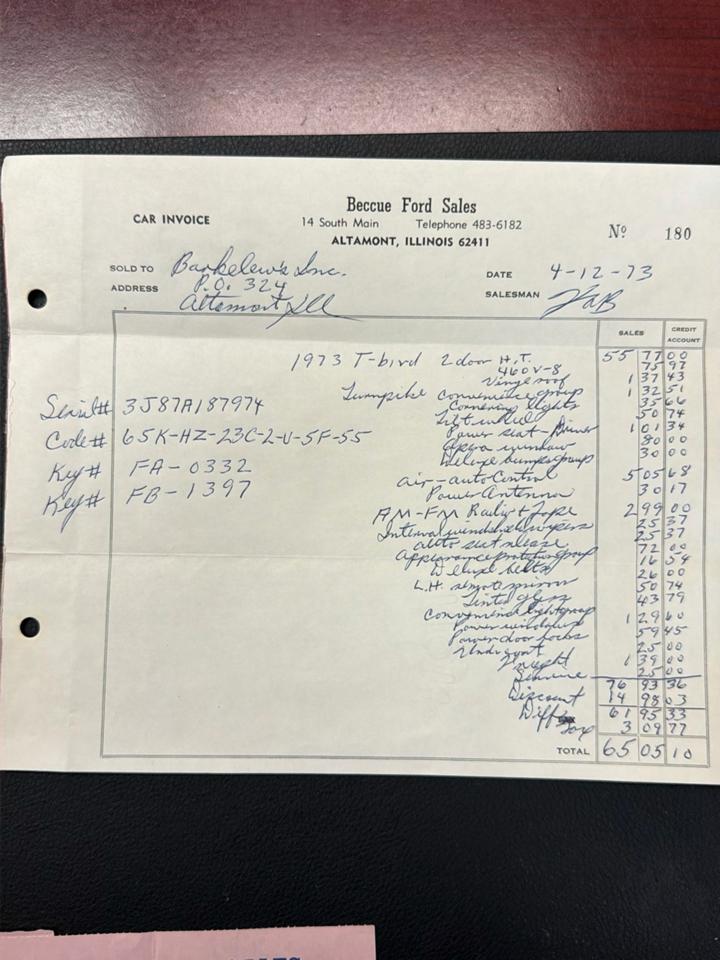 Beccue Ford Sales
CAR INVOICE
14 South Main Telephone 483-6182
ALTAMONT, ILLINOIS 62411
Nº 180
SOLD TO Barkelew's Inc.
ADDRESS P.O. 324
Altamont Ill
DATE 4-12-73
SALESMAN
SALES CREDIT ACCOUNT
1973 T-bird 2 door H.T. 55 77 00
460 V-8 75 97
Vinyl roof 1 37 43
Turnpike convenience group 1 32 51
Cornering lights 35 66
Tilt wheel 50 74
Power seat - Driver 1 01 34
Opera window 80 00
Deluxe bumper group 30 00
air - auto Control 5 05 68
Power Antenna 30 17
AM-FM Radio & Tape 2 99 00
Interval windshield wipers 25 37
auto seat release 25 37
appearance protection group 72 00
Deluxe belts 16 54
L.H. remote mirror 26 00
Tinted glass 50 74
Convenience light group 43 79
Power windows 1 29 60
Power door locks 59 45
Undercoat 25 00
Freight 1 39 00
Service 25 00
76 93 36
Discount 14 98 03
Diff 61 95 33
Tax 3 09 77
TOTAL 65 05 10
Serial# 3J87A187974
Code# 65K-HZ-23C-2-U-5F-55
Key# FA-0332
Key# FB-1397